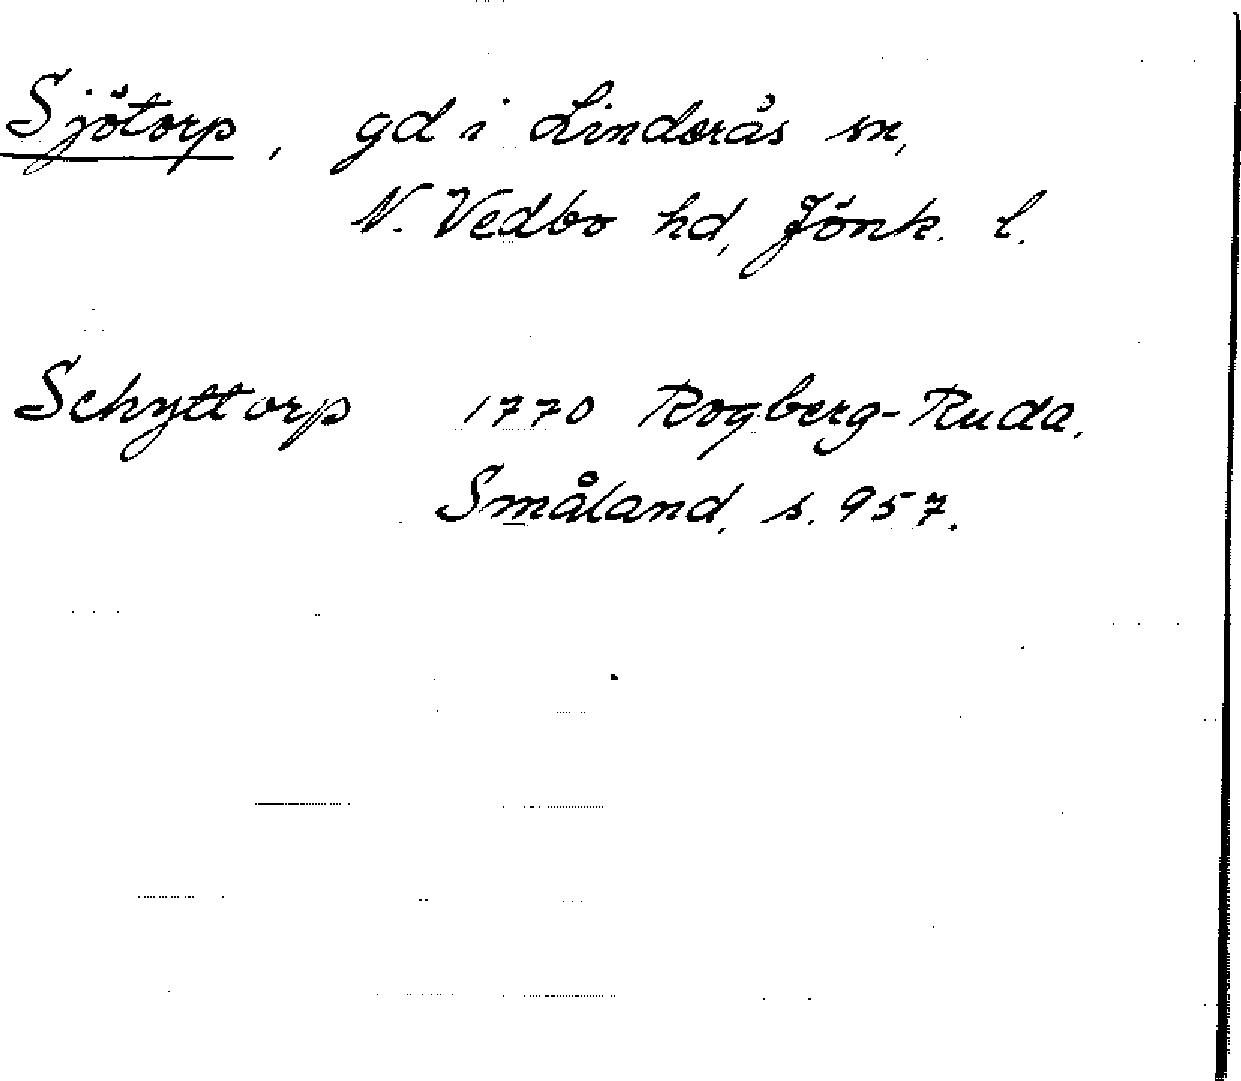 Sjötorp, gd i Linderås sn,
N. Vedbo hd, Jönk. l.
Schyttorp 1770 Rogberg-Ruda,
Småland, s. 957.